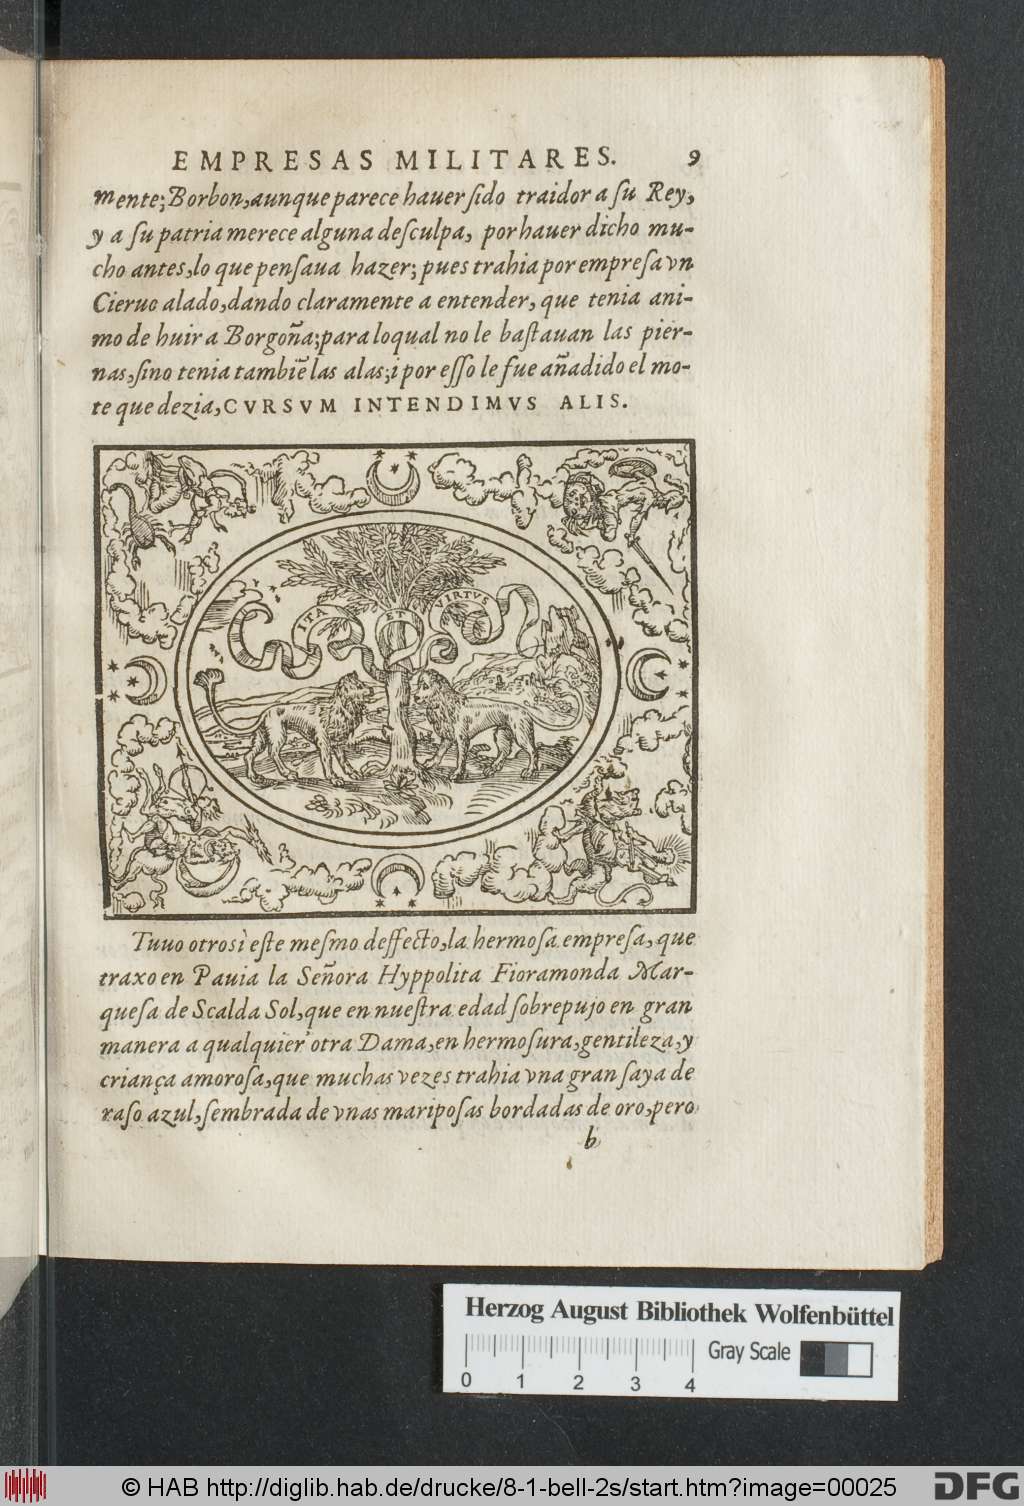 EMPRESAS MILITARES. 9
mente; Borbon, aunque parece hauer sido traidor a su Rey,
y a su patria merece alguna desculpa, por hauer dicho mu-
cho antes, lo que pensaua hazer; pues trahia por empresa vn
Cieruo alado, dando claramente a entender, que tenia ani-
mo de huir a Borgoña; para loqual no le bastauan las pier-
nas, sino tenia tambiẽ las alas; i por esso le fue añadido el mo-
te que dezia, CVRSVM INTENDIMVS ALIS.
ITA ET VIRTVS
Tuuo otrosì este mesmo deffecto, la hermosa empresa, que
traxo en Pauia la Señora Hyppolita Fioramonda Mar-
quesa de Scalda Sol, que en nuestra edad sobrepujo en gran
manera a qualquier otra Dama, en hermosura, gentileza, y
criança amorosa, que muchas vezes trahia vna gran saya de
raso azul, sembrada de vnas mariposas bordadas de oro, pero
b
Herzog August Bibliothek Wolfenbüttel
Gray Scale
0 1 2 3 4
© HAB http://diglib.hab.de/drucke/8-1-bell-2s/start.htm?image=00025
DFG